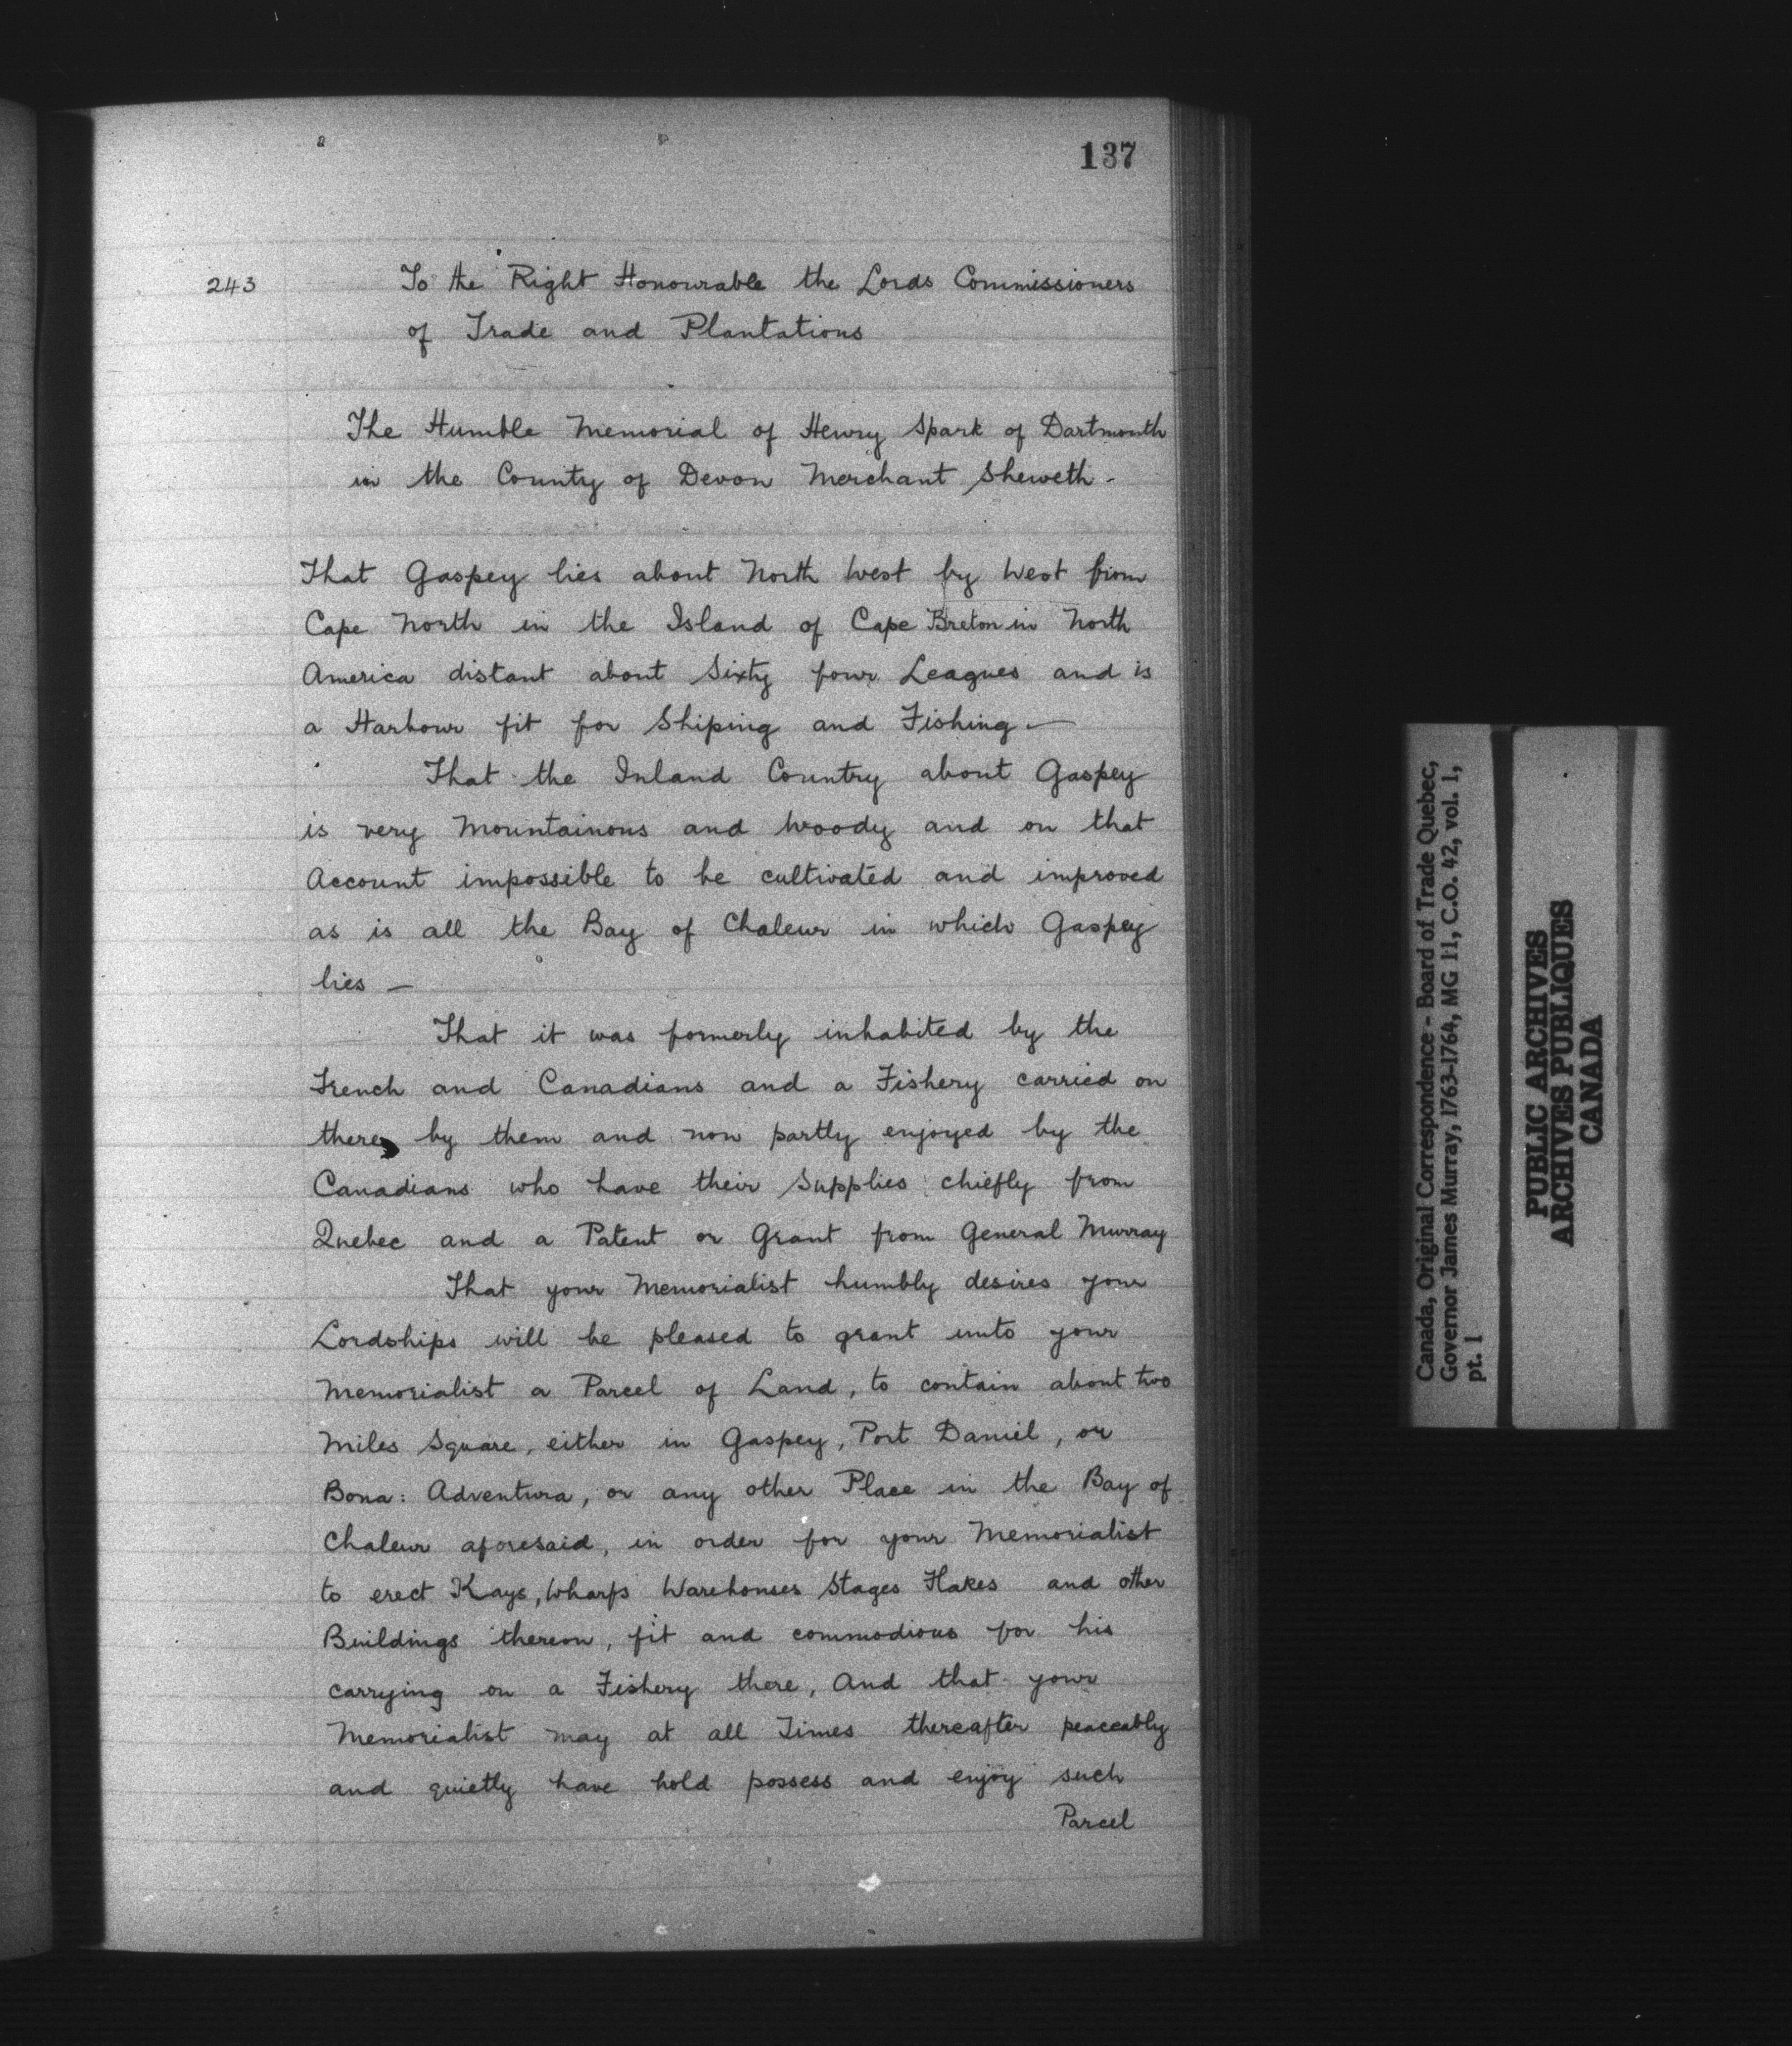 137
243
To the Right Honourable the Lords Commissioners
of Trade and Plantations
The Humble Memorial of Henry Spark of Dartmouth
in the County of Devon Merchant Sheweth -
That Gaspey lies about North West by West from
Cape North in the Island of Cape Breton in North
America distant about Sixty four Leagues and is
a Harbour fit for Shiping and Fishing —
That the Inland Country about Gaspey
is very Mountainous and Woody and on that
Account impossible to be cultivated and improved
as is all the Bay of Chaleur in which Gaspey
lies —
That it was formerly inhabited by the
French and Canadians and a Fishery carried on
there by them and now partly enjoyed by the
Canadians who have their Supplies chiefly from
Quebec and a Patent or Grant from General Murray
That your Memorialist humbly desires your
Lordships will be pleased to grant unto your
Memorialist a Parcel of Land, to contain about two
Miles Square, either in Gaspey, Port Daniel, or
Bona: Adventura, or any other Place in the Bay of
Chaleur aforesaid, in order for your Memorialist
to erect Kays, Wharfs Warehouses Stages Flakes and other
Buildings thereon, fit and commodious for his
carrying on a Fishery there, And that your
Memorialist may at all Times thereafter peaceably
and quietly have hold possess and enjoy such
Parcel
Canada, Original Correspondence - Board of Trade Quebec,
Governor James Murray, 1763-1764, MG 11, C.O. 42, vol. 1,
pt. 1
PUBLIC ARCHIVES
ARCHIVES PUBLIQUES
CANADA